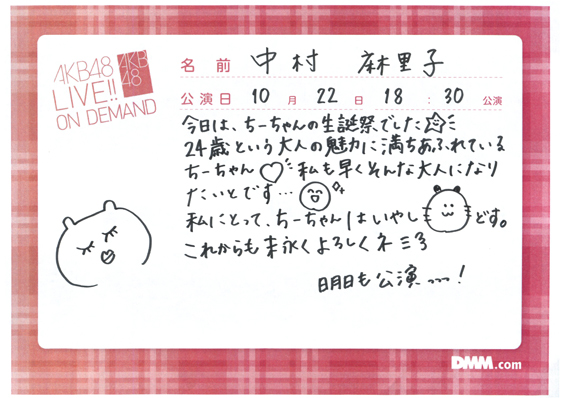 AKB48
LIVE!!
ON DEMAND
AKB
48
名前 中村 麻里子
公演日 10月22日 18:30公演
今日は、ちーちゃんの生誕祭でした
24歳という大人の魅力に満ちあふれている
ちーちゃん 私も早くそんな大人になり
たいとです…
私にとって、ちーちゃんはいやし どす。
これからも末永くよろしくネ
明日も公演 !
DMM.com